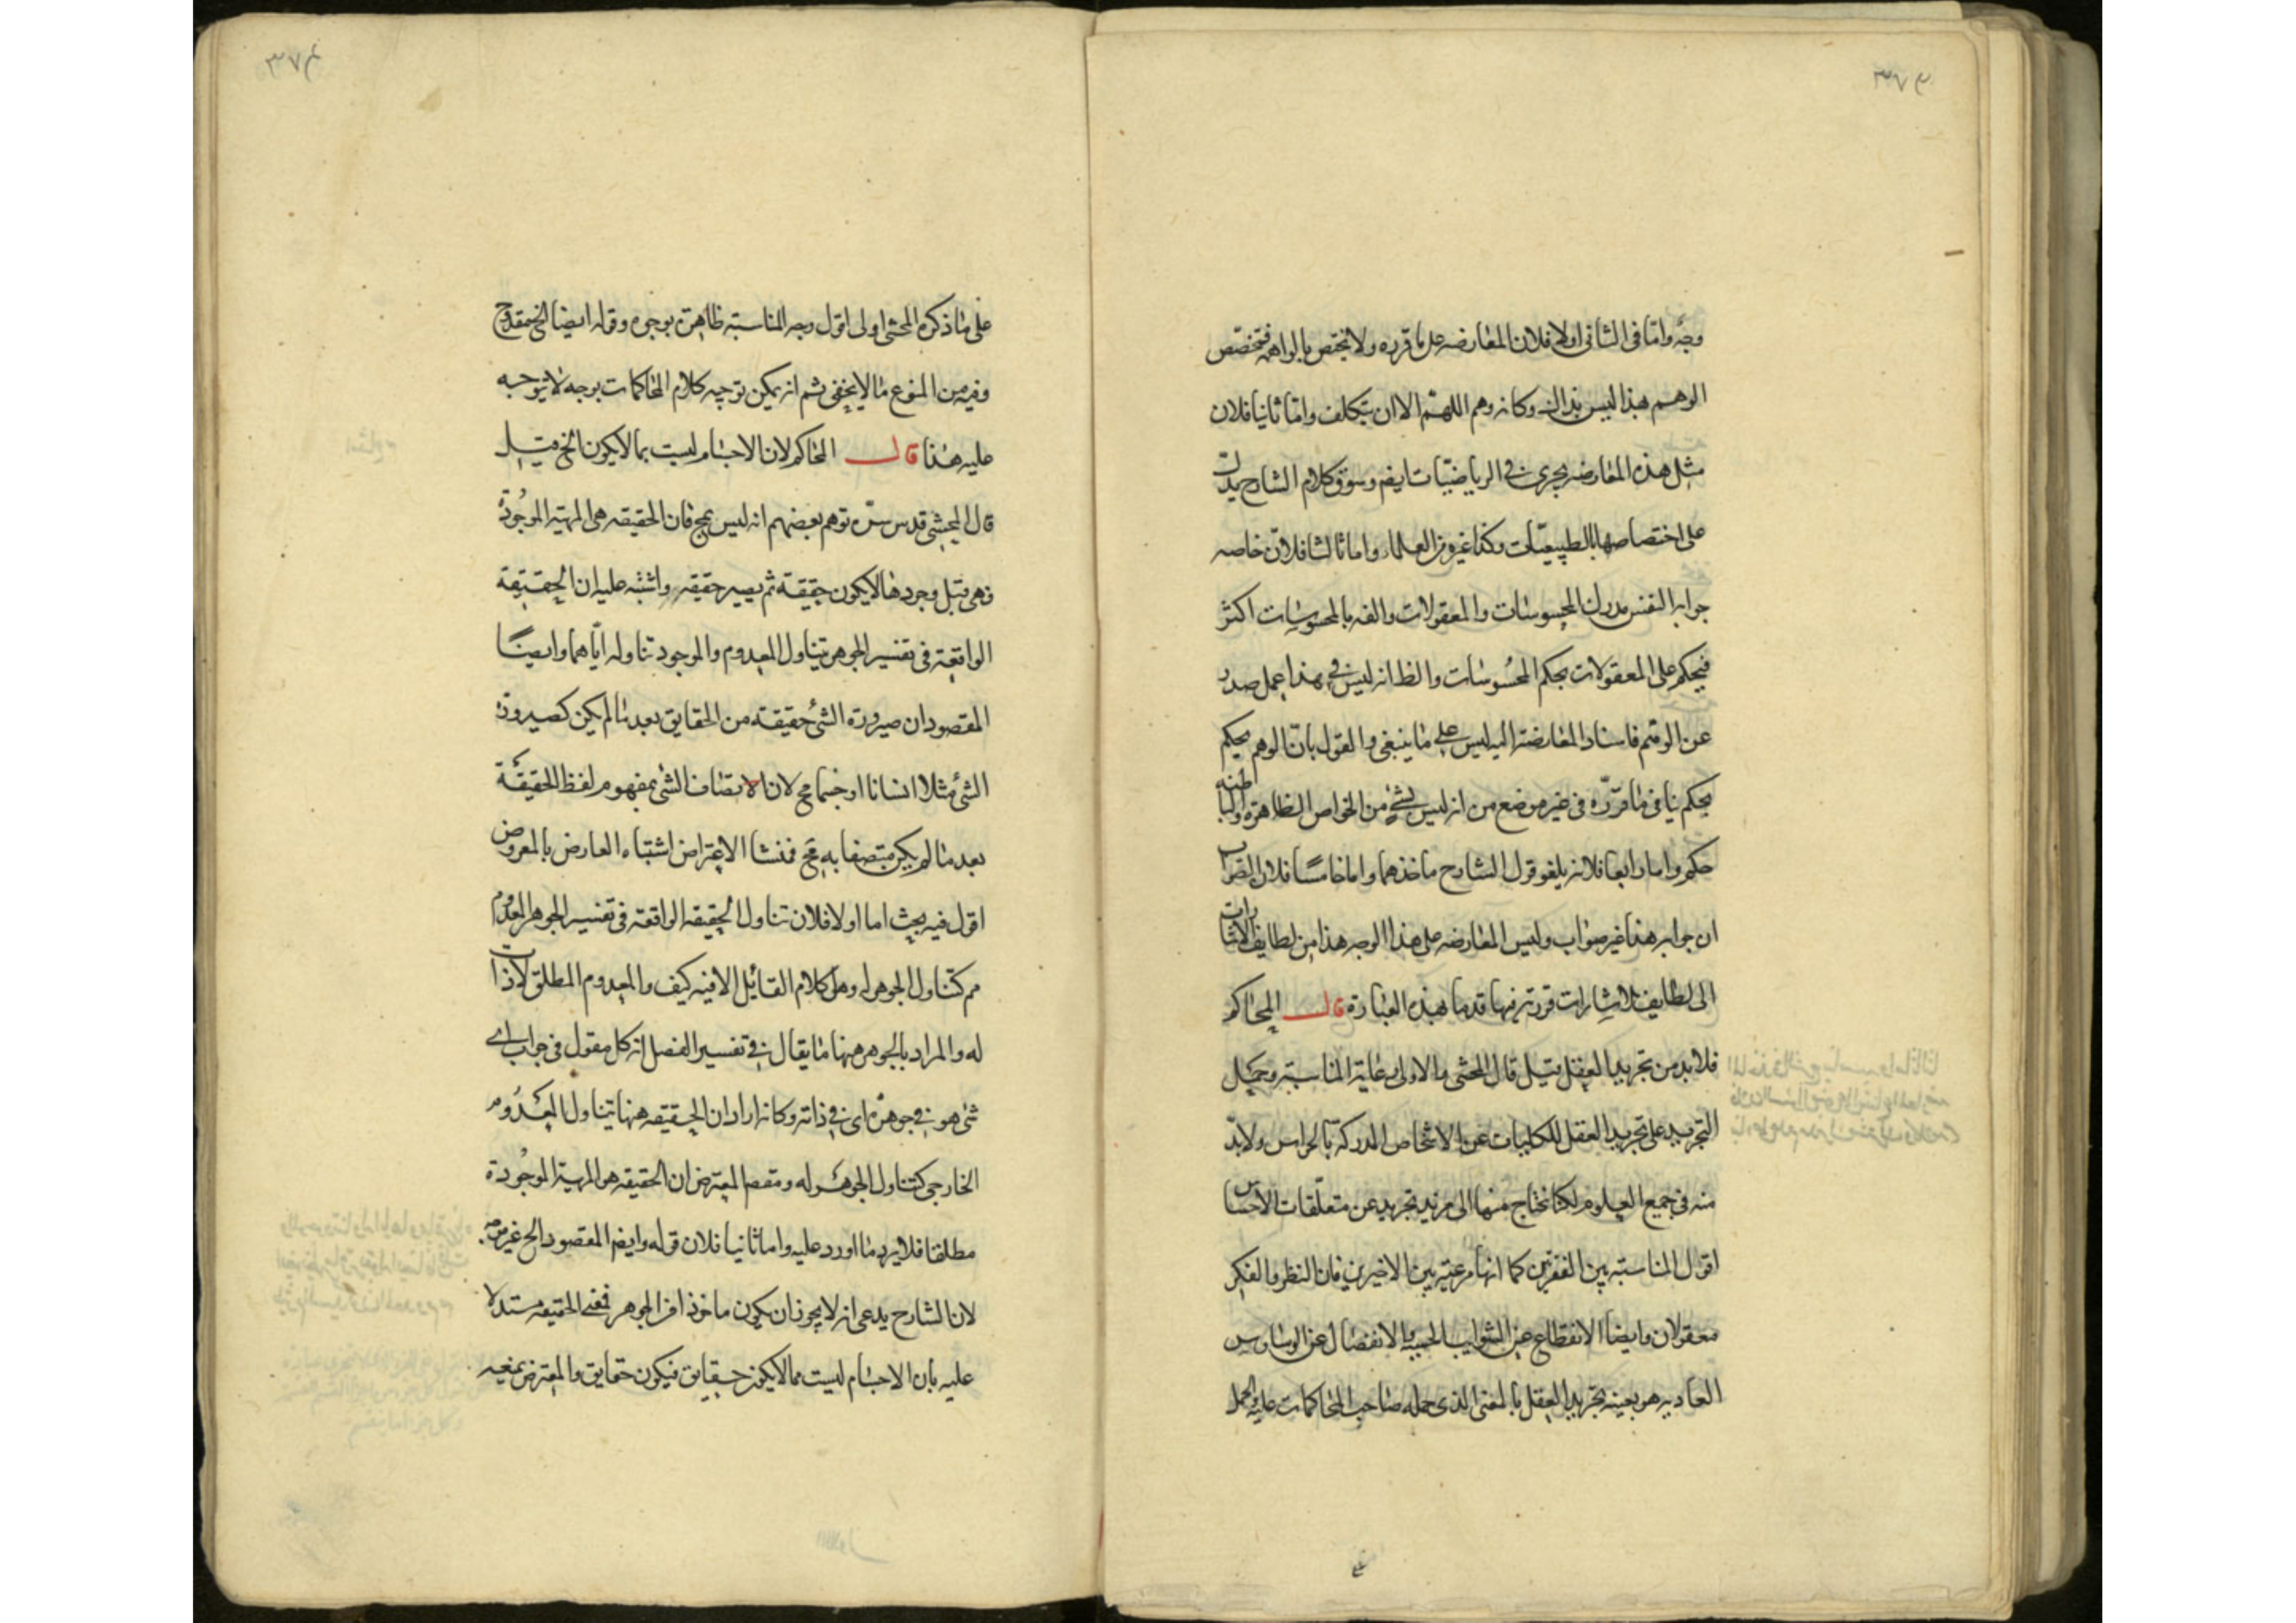 وجه واما فى الثانى اولا فلان المعارضه على ما قرره ولا يختص بالواهمه فتخصص
الوهم بهذا ليس بذاك وكانه وهم اللهم الا ان يتكلف واما ثانيا فلان
مثل هذه المعارضه يجرى فى الرياضيات ايضم وسوق كلام الشارح يدل
على اختصاصها بالطبيعيات وكذا غيره من العلماء واما ثالثا فلان خاصه
جوابه النفس مدرك المحسوسات والمعقولات والفه بالمحسوسات اكثر
فيحكم على المعقولات بحكم المحسوسات والظ انه ليس فى هذا عمل صدر
عن الوهم فاسناد المعارضة اليه ليس على ما ينبغى والقول بان الوهم يحكم
يحكم ينافى ما قرره فى غير موضع من انه ليس لشئ من الخواص الظاهرة والباطنه
حكم واما رابعا فلانه يلغو قول الشارح ماخذهما واما خامسا فلان الصواب
ان جوابه هذا غير صواب وليس المعارضه على هذا الوجه هذا من لطايف الاشارات
الى لطايف الاشارات قررته فيها قدما بهذه العبارة قال المحاكم
فلا بد من تجريد العقل قيل قال المحشى والاولى رعاية المناسبة وحمل
التجريد على تجريد العقل للكليات عن الاشخاص المدركة بالحواس ولا بد
منه فى جميع العلوم لكنا نحتاج منها الى مزيد تجريد عن متعلقات الاحساس
اقول المناسبة بين الفقرتين كما انها مرعية بين الاخيرين فان النظر والفكر
معقولان وايضا الانقطاع عن الشوايب الحسيه والانفصال عن الوساوس
العاديه هو بعينه تجريد العقل بالمعنى الذى حمله صاحب المحاكمات عليه والحمل
على ما ذكره المحشى اولى اقول وجه المناسبة ظاهرة بوجوه وقوله ايضا الخ مقدوح
وفيه من المنوع ما لا يخفى ثم انه يمكن توجيه كلام المحاكمات بوجه لا يتوجه
عليه هذا قال المحاكم لان الاجسام ليست بما لا يكون الخ قيل
قال المحشى قدس سره توهم بعضهم انه ليس بمح فان الحقيقه هى المهيه الموجودة
وهى قبل وجودها لا يكون حقيقة ثم يصير حقيقه واشتبه عليه ان الحقيقة
الواقعة فى تفسير الجوهر يتناول المعدوم والموجود تناوله اياهما وايضا
المقصود ان صيرورة الشئ حقيقة من الحقايق بعد ما لم يكن كصيرورة
الشئ مثلا انسانا او جسما مح لان الاتصاف الشئ بمفهوم لفظ الحقيقة
بعد ما لم يكن متصفا به مح فمنشا الاعتراض اشتباه العارض بالمعروض
اقول فيه بحث اما اولا فلان تناول الحقيقه الواقعه فى تفسير الجوهر المعدوم
مم كتناول الجوهر له وهل كلام القائل الا فيه كيف والمعدوم المطلق لا ذات
له والمراد بالجوهر ههنا ما يقال فى تفسير الفصل انه كل مقول فى جواب اى
شئ هو فى جوهره اى فى ذاته وكانه اراد ان الحقيقه ههنا تتناول المعدوم
الخارجى كتناول الجوهر له ومقصم المعترض ان الحقيقه هو المهية الموجودة
مطلقا فلا يرد ما اورد عليه واما ثانيا فلان قوله وايضم المقصود الخ غير موجه
لان الشارح يدعى انه لا يجوز ان يكون ماخوذا فى الجوهر معنى الحقيقه مستدلا
عليه بان الاجسام ليست مما لا يكون حقايق فيكون حقايق والمعترض يمنعه